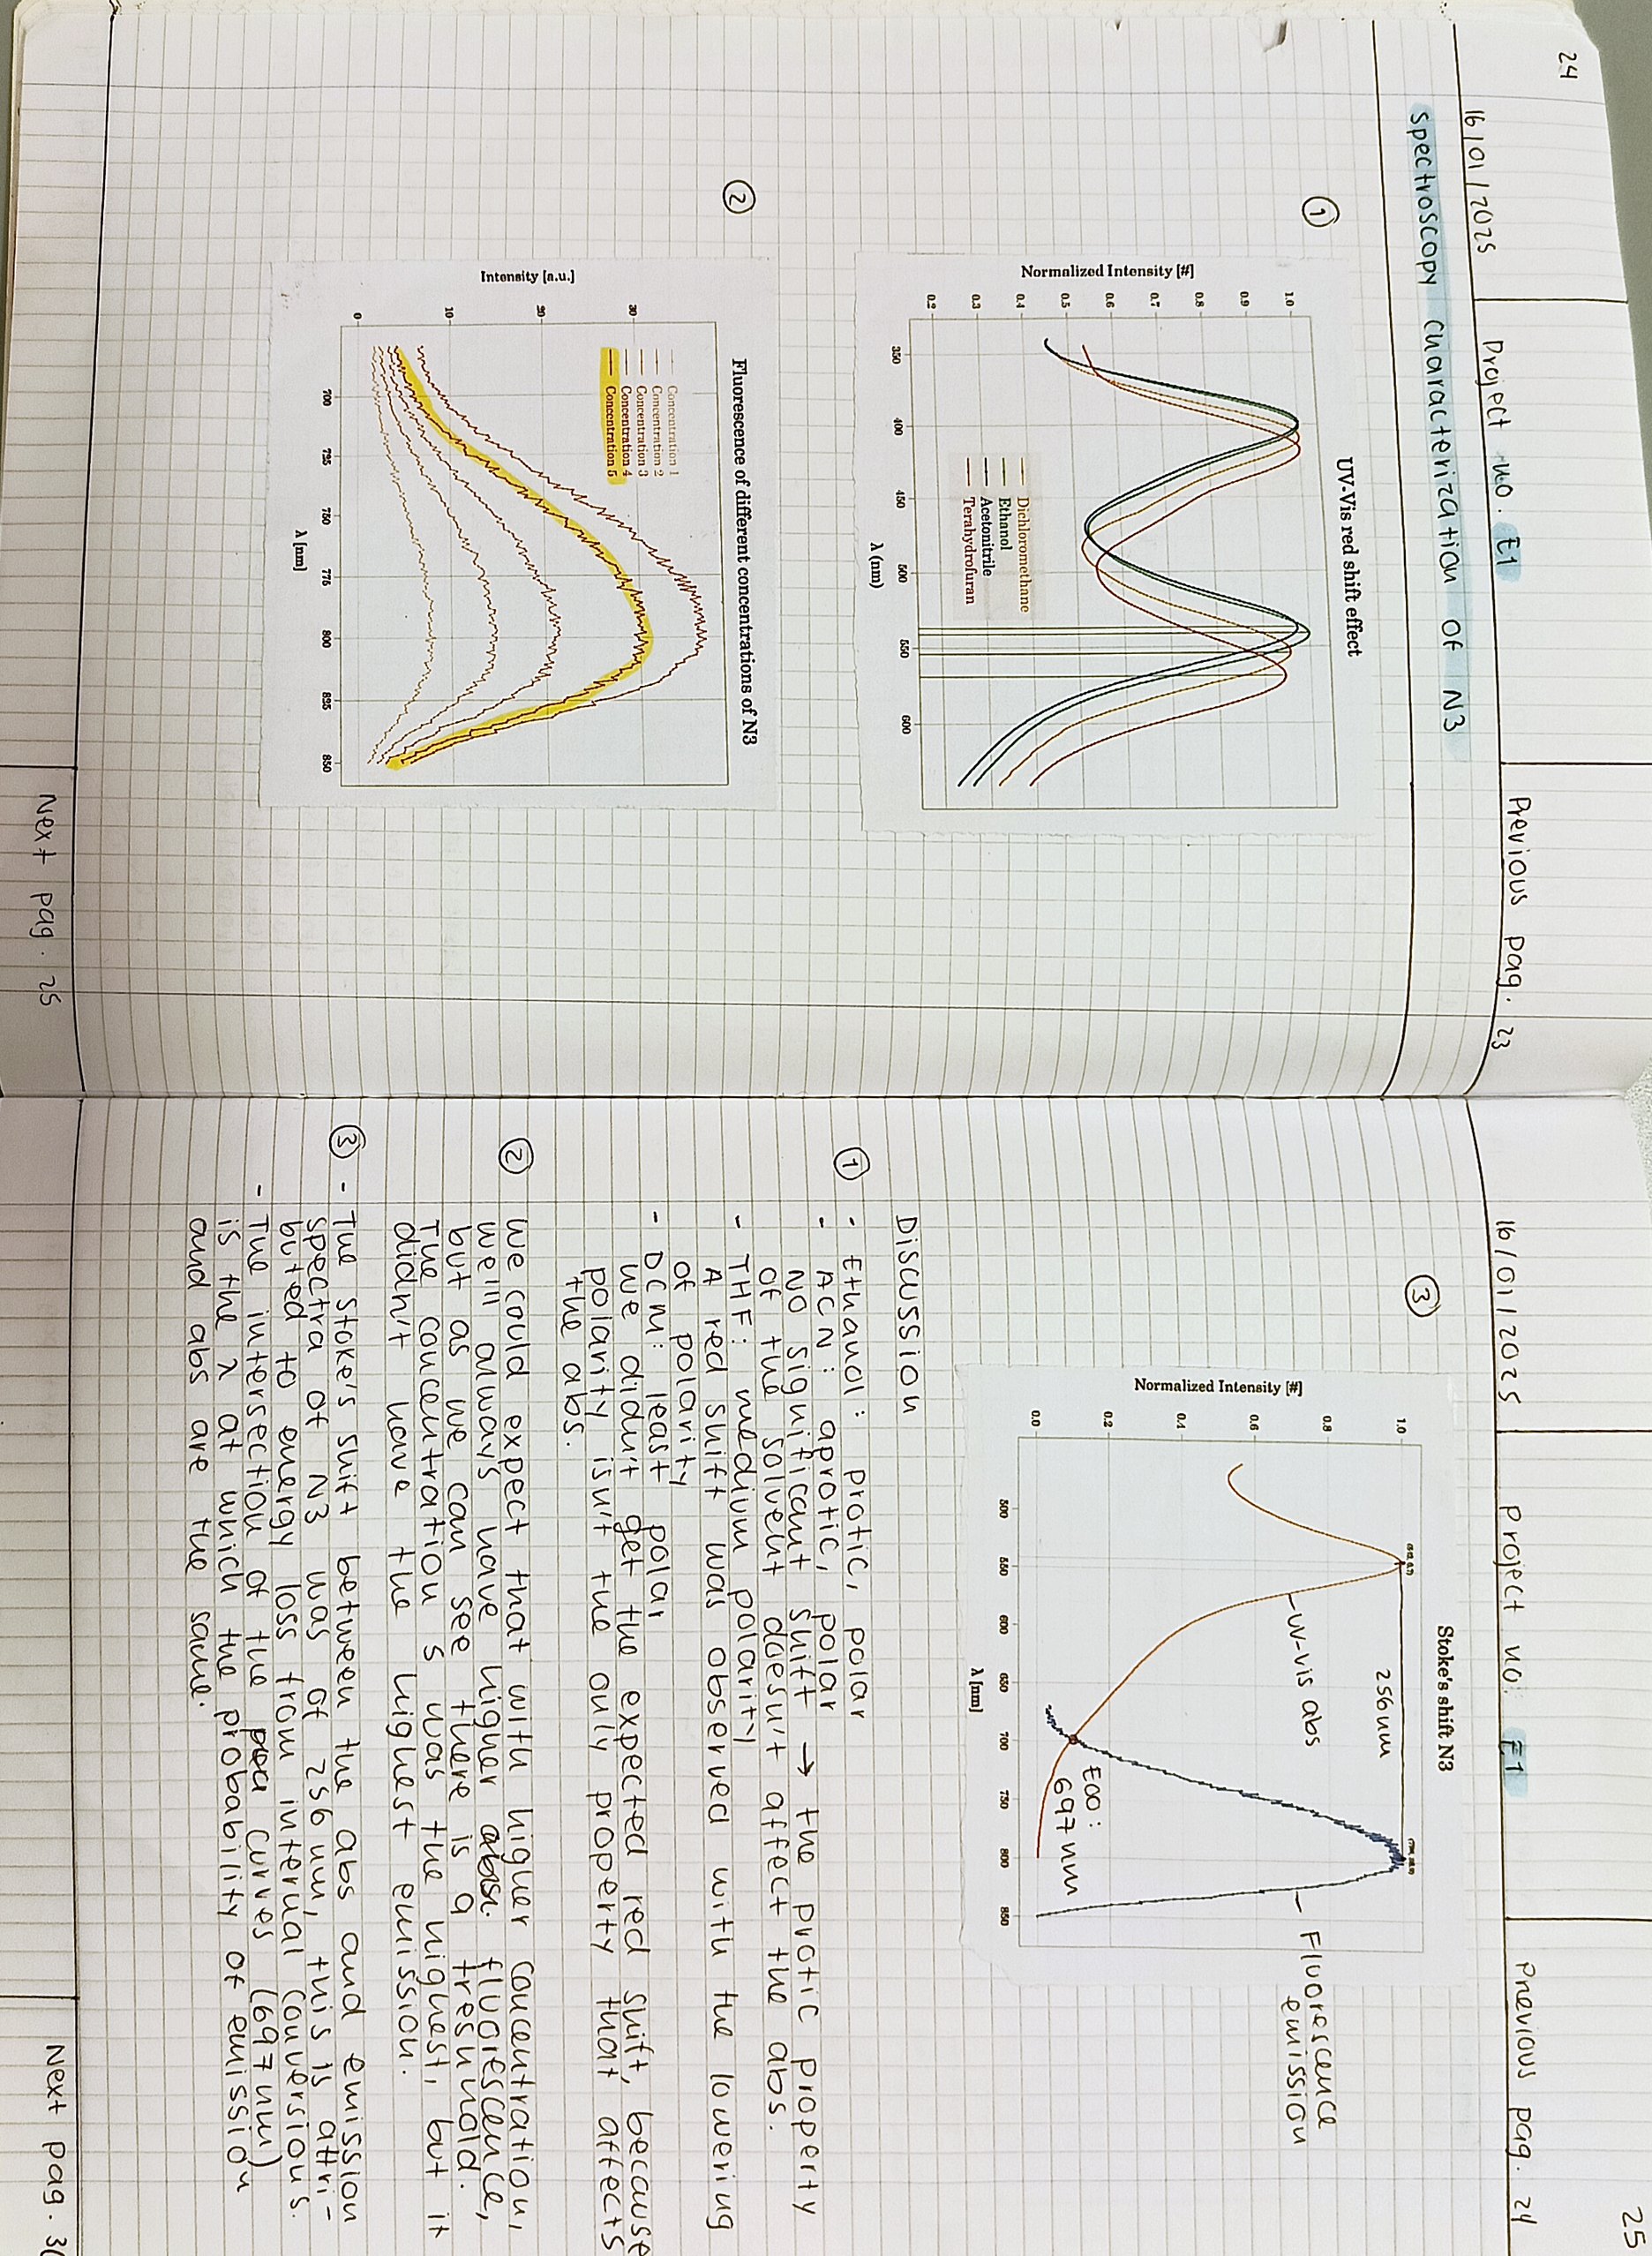 24
16/01/2025
Project no. E1
Previous pag. 23
spectroscopy characterization of N3
①
UV-Vis red shift effect
Normalized Intensity [#]
1.0
0.9
0.8
0.7
0.6
0.5
0.4
0.3
0.2
Dichloromethane
Ethanol
Acetonitrile
Terahydrofuran
350 400 450 500 550 600
λ (nm)
②
Fluorescence of different concentrations of N3
Intensity [a.u.]
30
20
10
0
Concentration 1
Concentration 2
Concentration 3
Concentration 4
Concentration 5
700 725 750 775 800 825 850
λ [nm]
Next pag. 25
25
16/01/2025
project no: E1
Previous pag. 24
③
Stoke's shift N3
Normalized Intensity [#]
1.0
0.8
0.6
0.4
0.2
0.0
256nm
UV-vis abs
Fluorescence
emission
E00:
697nm
500 550 600 650 700 750 800 850
λ [nm]
Discussion
① - Ethanol: protic, polar
- ACN: aprotic, polar
No significant shift → the protic property
of the solvent doesn't affect the abs.
- THF: medium polarity
A red shift was observed with the lowering
of polarity
- DCM: least polar
we didn't get the expected red shift, because
polarity isn't the only property that affects
the abs.
② we could expect that with higher concentration,
we'll always have higher fluorescence,
but as we can see there is a treshhold.
The concentration 5 was the highest, but it
didn't have the highest emission.
③ - The stoke's shift between the abs and emission
spectra of N3 was of 256 nm, this is attri-
buted to energy loss from internal conversions.
- The intersection of the curves (697 nm)
is the λ at which the probability of emission
and abs are the same.
Next pag.